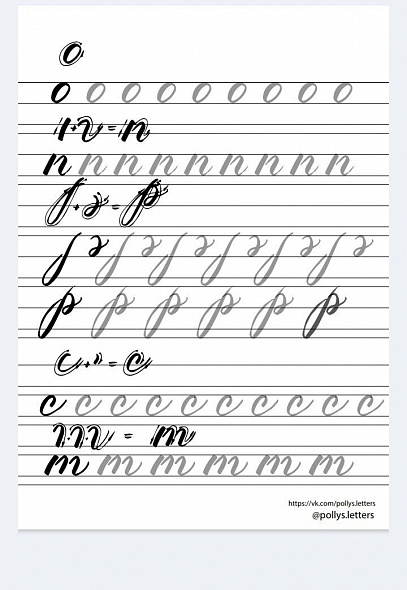 о
о о о о о о о о о
= п
п п п п п п п п п
= р
р р р р р р
с + = с
с с с с с с с с с с
= т
т т т т т т
https://vk.com/pollys.letters
@pollys.letters